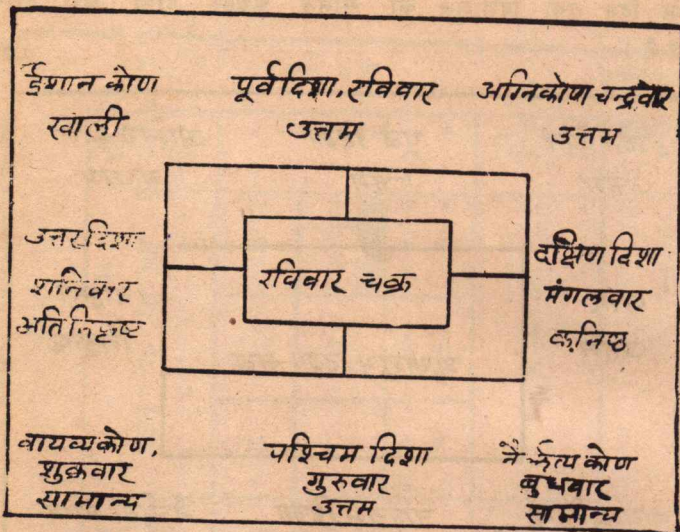 ईशान कोण
खाली
पूर्व दिशा, रविवार
उत्तम
अग्निकोण चन्द्रवार
उत्तम
उत्तर दिशा
शनिवार
अति निकृष्ट
रविवार चक्र
दक्षिण दिशा
मंगलवार
कनिष्ठ
वायव्य कोण,
शुक्रवार
सामान्य
पश्चिम दिशा
गुरुवार
उत्तम
नैर्ऋत्य कोण
बुधवार
सामान्य